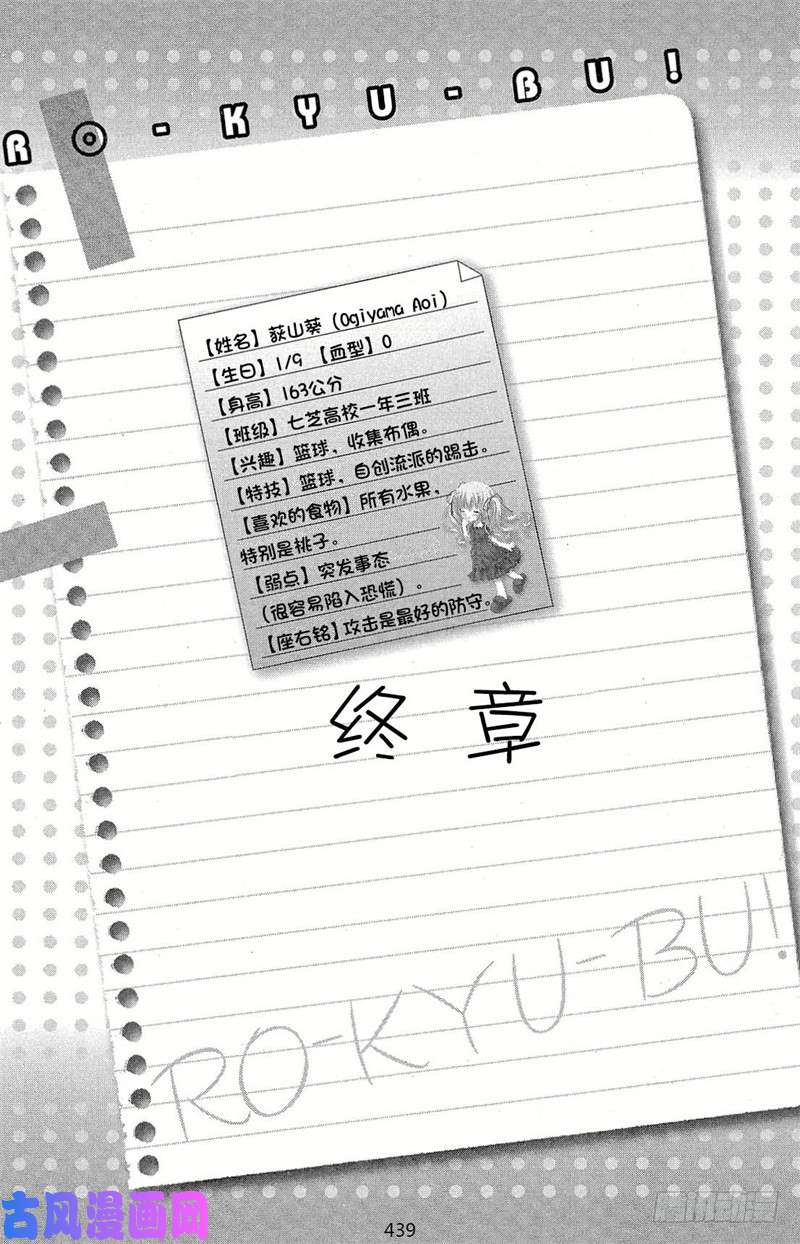 RO-KYU-BU!
【姓名】荻山葵（Ogiyama Aoi）
【生日】1/9 【血型】O
【身高】163公分
【班级】七芝高校一年三班
【兴趣】篮球，收集布偶。
【特技】篮球，自创流派的踢击。
【喜欢的食物】所有水果，
特别是桃子。
【弱点】突发事态
（很容易陷入恐慌）。
【座右铭】攻击是最好的防守。
终章
RO-KYU-BU!
古风漫画网
439